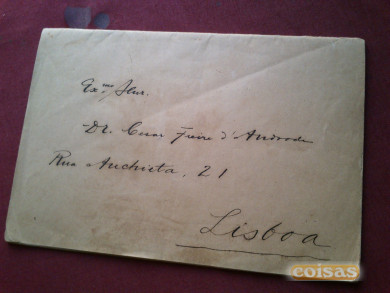 Ex.mo Snr.
Dr. Cesar Freire d'Andrade
Rua Anchieta, 21
Lisboa
coisas